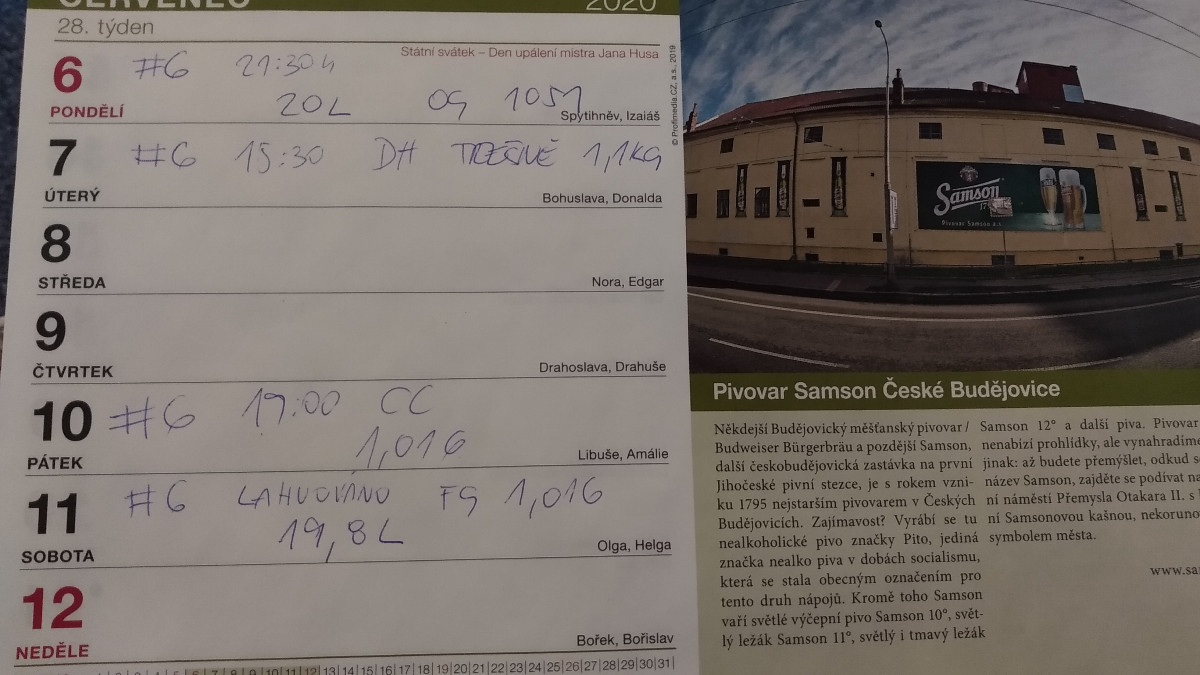 ČERVENEC 2020
28. týden
Státní svátek – Den upálení mistra Jana Husa
6 #6 21:30h
PONDĚLÍ 20L OG 1051
Spytihněv, Izaiáš
7 #6 15:30 DH TŘEŠNĚ 1,1KG
ÚTERÝ Bohuslava, Donalda
8
STŘEDA Nora, Edgar
9
ČTVRTEK Drahoslava, Drahuše
10 #6 19:00 CC
1,016
PÁTEK Libuše, Amálie
11 #6 LAHVOVÁNO FG 1,016
19,8L
SOBOTA Olga, Helga
12
NEDĚLE Bořek, Bořislav
6|7|8|9|10|11|12|13|14|15|16|17|18|19|20|21|22|23|24|25|26|27|28|29|30|31|
© Profimedia.CZ, a.s., 2019
Samson
Pivovar Samson a.s.
Pivovar Samson České Budějovice
Někdejší Budějovický měšťanský pivovar /
Budweiser Bürgerbräu a pozdější Samson,
další českobudějovická zastávka na první
Jihočeské pivní stezce, je s rokem vzni-
ku 1795 nejstarším pivovarem v Českých
Budějovicích. Zajímavost? Vyrábí se tu
nealkoholické pivo značky Pito, jediná
značka nealko piva v dobách socialismu,
která se stala obecným označením pro
tento druh nápojů. Kromě toho Samson
vaří světlé výčepní pivo Samson 10°, svět-
lý ležák Samson 11°, světlý i tmavý ležák
Samson 12° a další piva. Pivovar
nenabízí prohlídky, ale vynahradíme
jinak: až budete přemýšlet, odkud s
název Samson, zajděte se podívat na
ní náměstí Přemysla Otakara II. s
ní Samsonovou kašnou, nekoruno
symbolem města.
www.sa